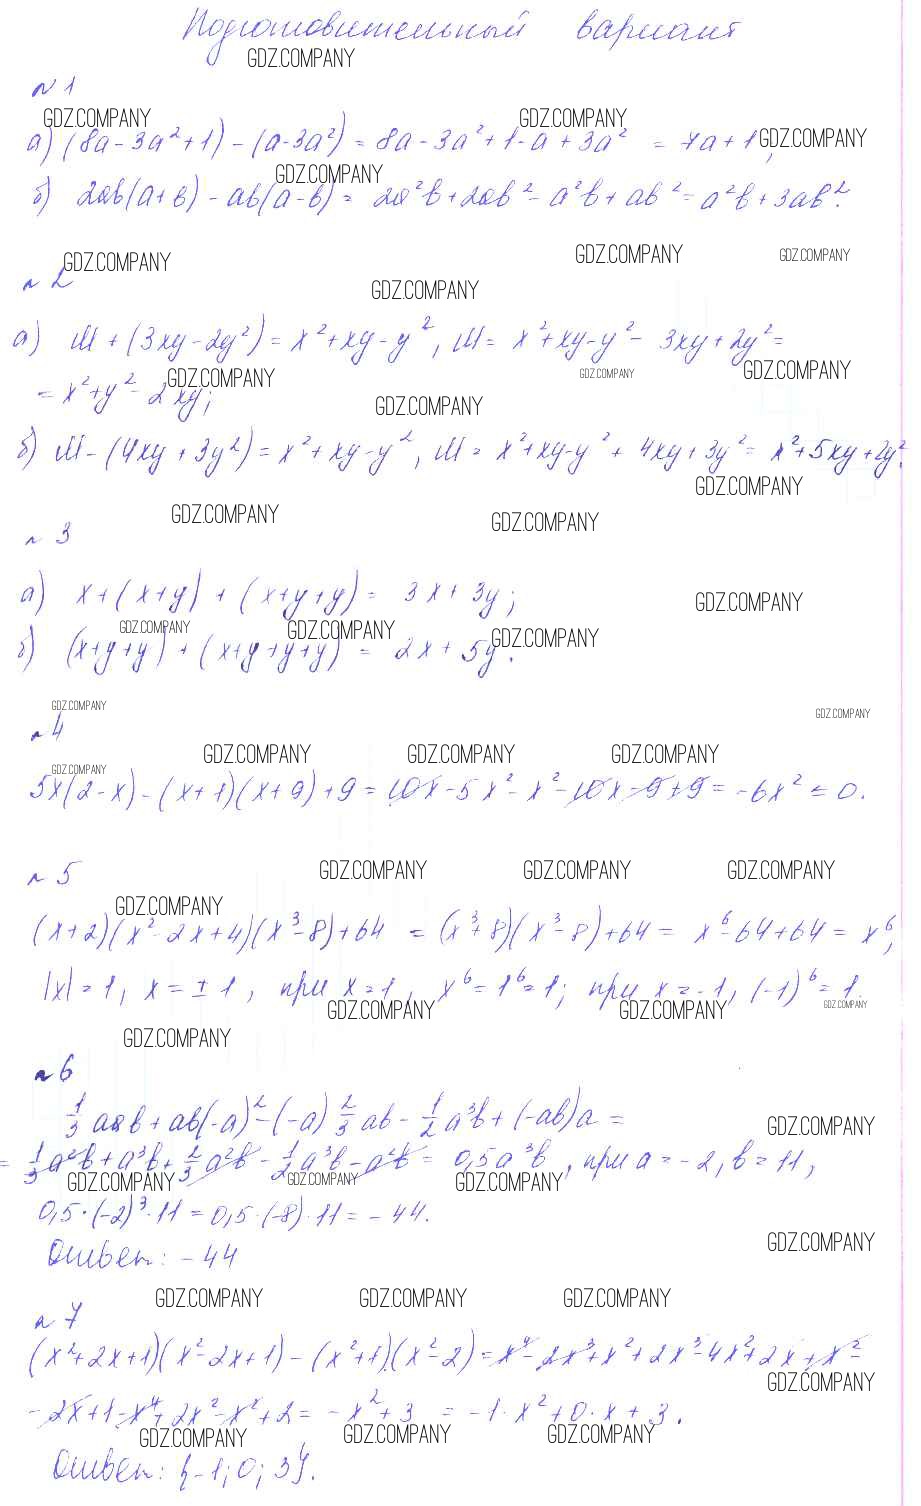 Подготовительный вариант
GDZ.COMPANY
№ 1
GDZ.COMPANY GDZ.COMPANY
а) (8a - 3a² + 1) - (a - 3a²) = 8a - 3a² + 1 - a + 3a² = 7a + 1, GDZ.COMPANY
GDZ.COMPANY
б) 2ab(a + b) - ab(a - b) = 2a²b + 2ab² - a²b + ab² = a²b + 3ab².
GDZ.COMPANY GDZ.COMPANY GDZ.COMPANY
№ 2
GDZ.COMPANY
а) M + (3xy - 2y²) = x² + xy - y², M = x² + xy - y² - 3xy + 2y² =
GDZ.COMPANY GDZ.COMPANY GDZ.COMPANY
= x² + y² - 2xy;
GDZ.COMPANY
б) M - (4xy + 3y²) = x² + xy - y², M = x² + xy - y² + 4xy + 3y² = x² + 5xy + 2y².
GDZ.COMPANY
GDZ.COMPANY GDZ.COMPANY
№ 3
а) x + (x + y) + (x + y + y) = 3x + 3y; GDZ.COMPANY
GDZ.COMPANY GDZ.COMPANY GDZ.COMPANY
б) (x + y + y) + (x + y + y + y) = 2x + 5y.
GDZ.COMPANY GDZ.COMPANY
№ 4
GDZ.COMPANY GDZ.COMPANY GDZ.COMPANY
GDZ.COMPANY
5x(2 - x) - (x + 1)(x + 9) + 9 = 10x - 5x² - x² - 10x - 9 + 9 = -6x² ≤ 0.
№ 5 GDZ.COMPANY GDZ.COMPANY GDZ.COMPANY
GDZ.COMPANY
(x + 2)(x² - 2x + 4)(x³ - 8) + 64 = (x³ + 8)(x³ - 8) + 64 = x⁶ - 64 + 64 = x⁶,
|x| = 1, x = ± 1, при x = 1, x⁶ = 1⁶ = 1; при x = -1, (-1)⁶ = 1.
GDZ.COMPANY GDZ.COMPANY GDZ.COMPANY
GDZ.COMPANY
№ 6
1/3 aab + ab(-a)² - (-a) 2/3 ab - 1/2 a³b + (-ab)a = GDZ.COMPANY
= 1/3 a²b + a³b + 2/3 a²b - 1/2 a³b - a²b = 0,5a³b, при a = -2, b = 11,
GDZ.COMPANY GDZ.COMPANY GDZ.COMPANY
0,5 · (-2)³ · 11 = 0,5 · (-8) · 11 = -44.
Ответ: -44 GDZ.COMPANY
GDZ.COMPANY GDZ.COMPANY GDZ.COMPANY
№ 7
(x² + 2x + 1)(x² - 2x + 1) - (x² + 1)(x² - 2) = x⁴ - 2x³ + x² + 2x³ - 4x² + 2x + x² -
GDZ.COMPANY
- 2x + 1 - x⁴ + 2x² - x² + 2 = -x² + 3 = -1 · x² + 0 · x + 3.
GDZ.COMPANY GDZ.COMPANY GDZ.COMPANY
Ответ: {-1; 0; 3}.